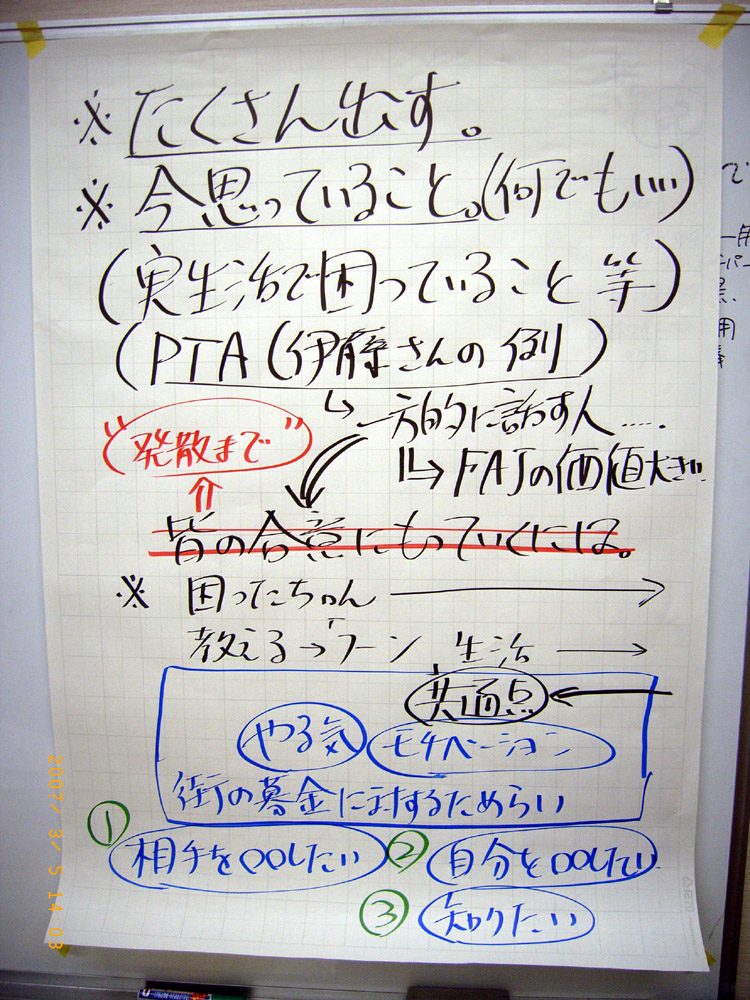 ※たくさん出す。
※今思っていること。(何でもいい)
(実生活で困っていること 等)
(PTA (伊藤さんの例)
↳一方的に話す人……
"発散まで"
↳FAJの価値大きい
皆の合意にもっていくには。
※困ったちゃん →
教える→ 生活 →
共通点 ←
やる気 モチベーション
街の募金に対するためらい
① 相手を〇〇したい ② 自分を〇〇したい
③ 知りたい
2007/ 3/ 5 14 03